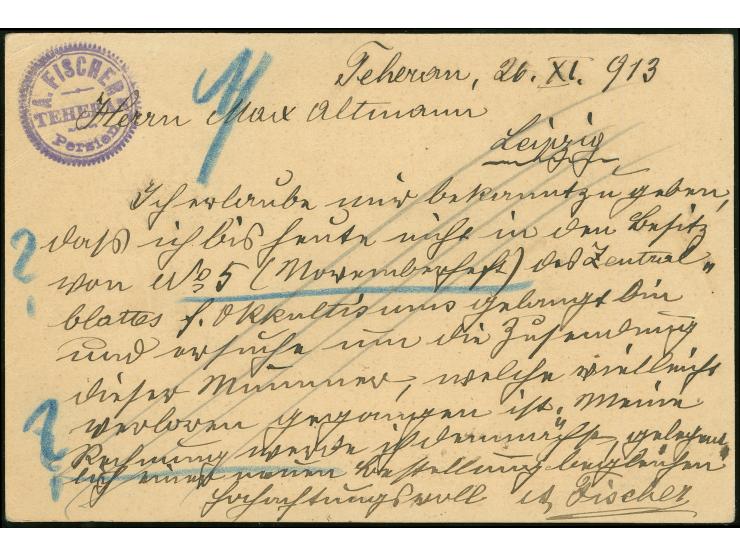 A. FISCHER
TEHERAN
Persien
Teheran, 26. XI. 913
Herrn Max Altmann
Leipzig
Ich erlaube mir bekannt zu geben,
daß ich bis heute nicht in den Besitz
von No 5 (Novemberheft) des Zentral„
blattes f. Okkultismus gelangt bin
und ersuche um die Zusendung
dieser Nummer, welche vielleicht
verloren gegangen ist. Meine
Rechnung werde ich demnächst gelegent
lich einer neuen Bestellung begleichen
Hochachtungsvoll A. Fischer